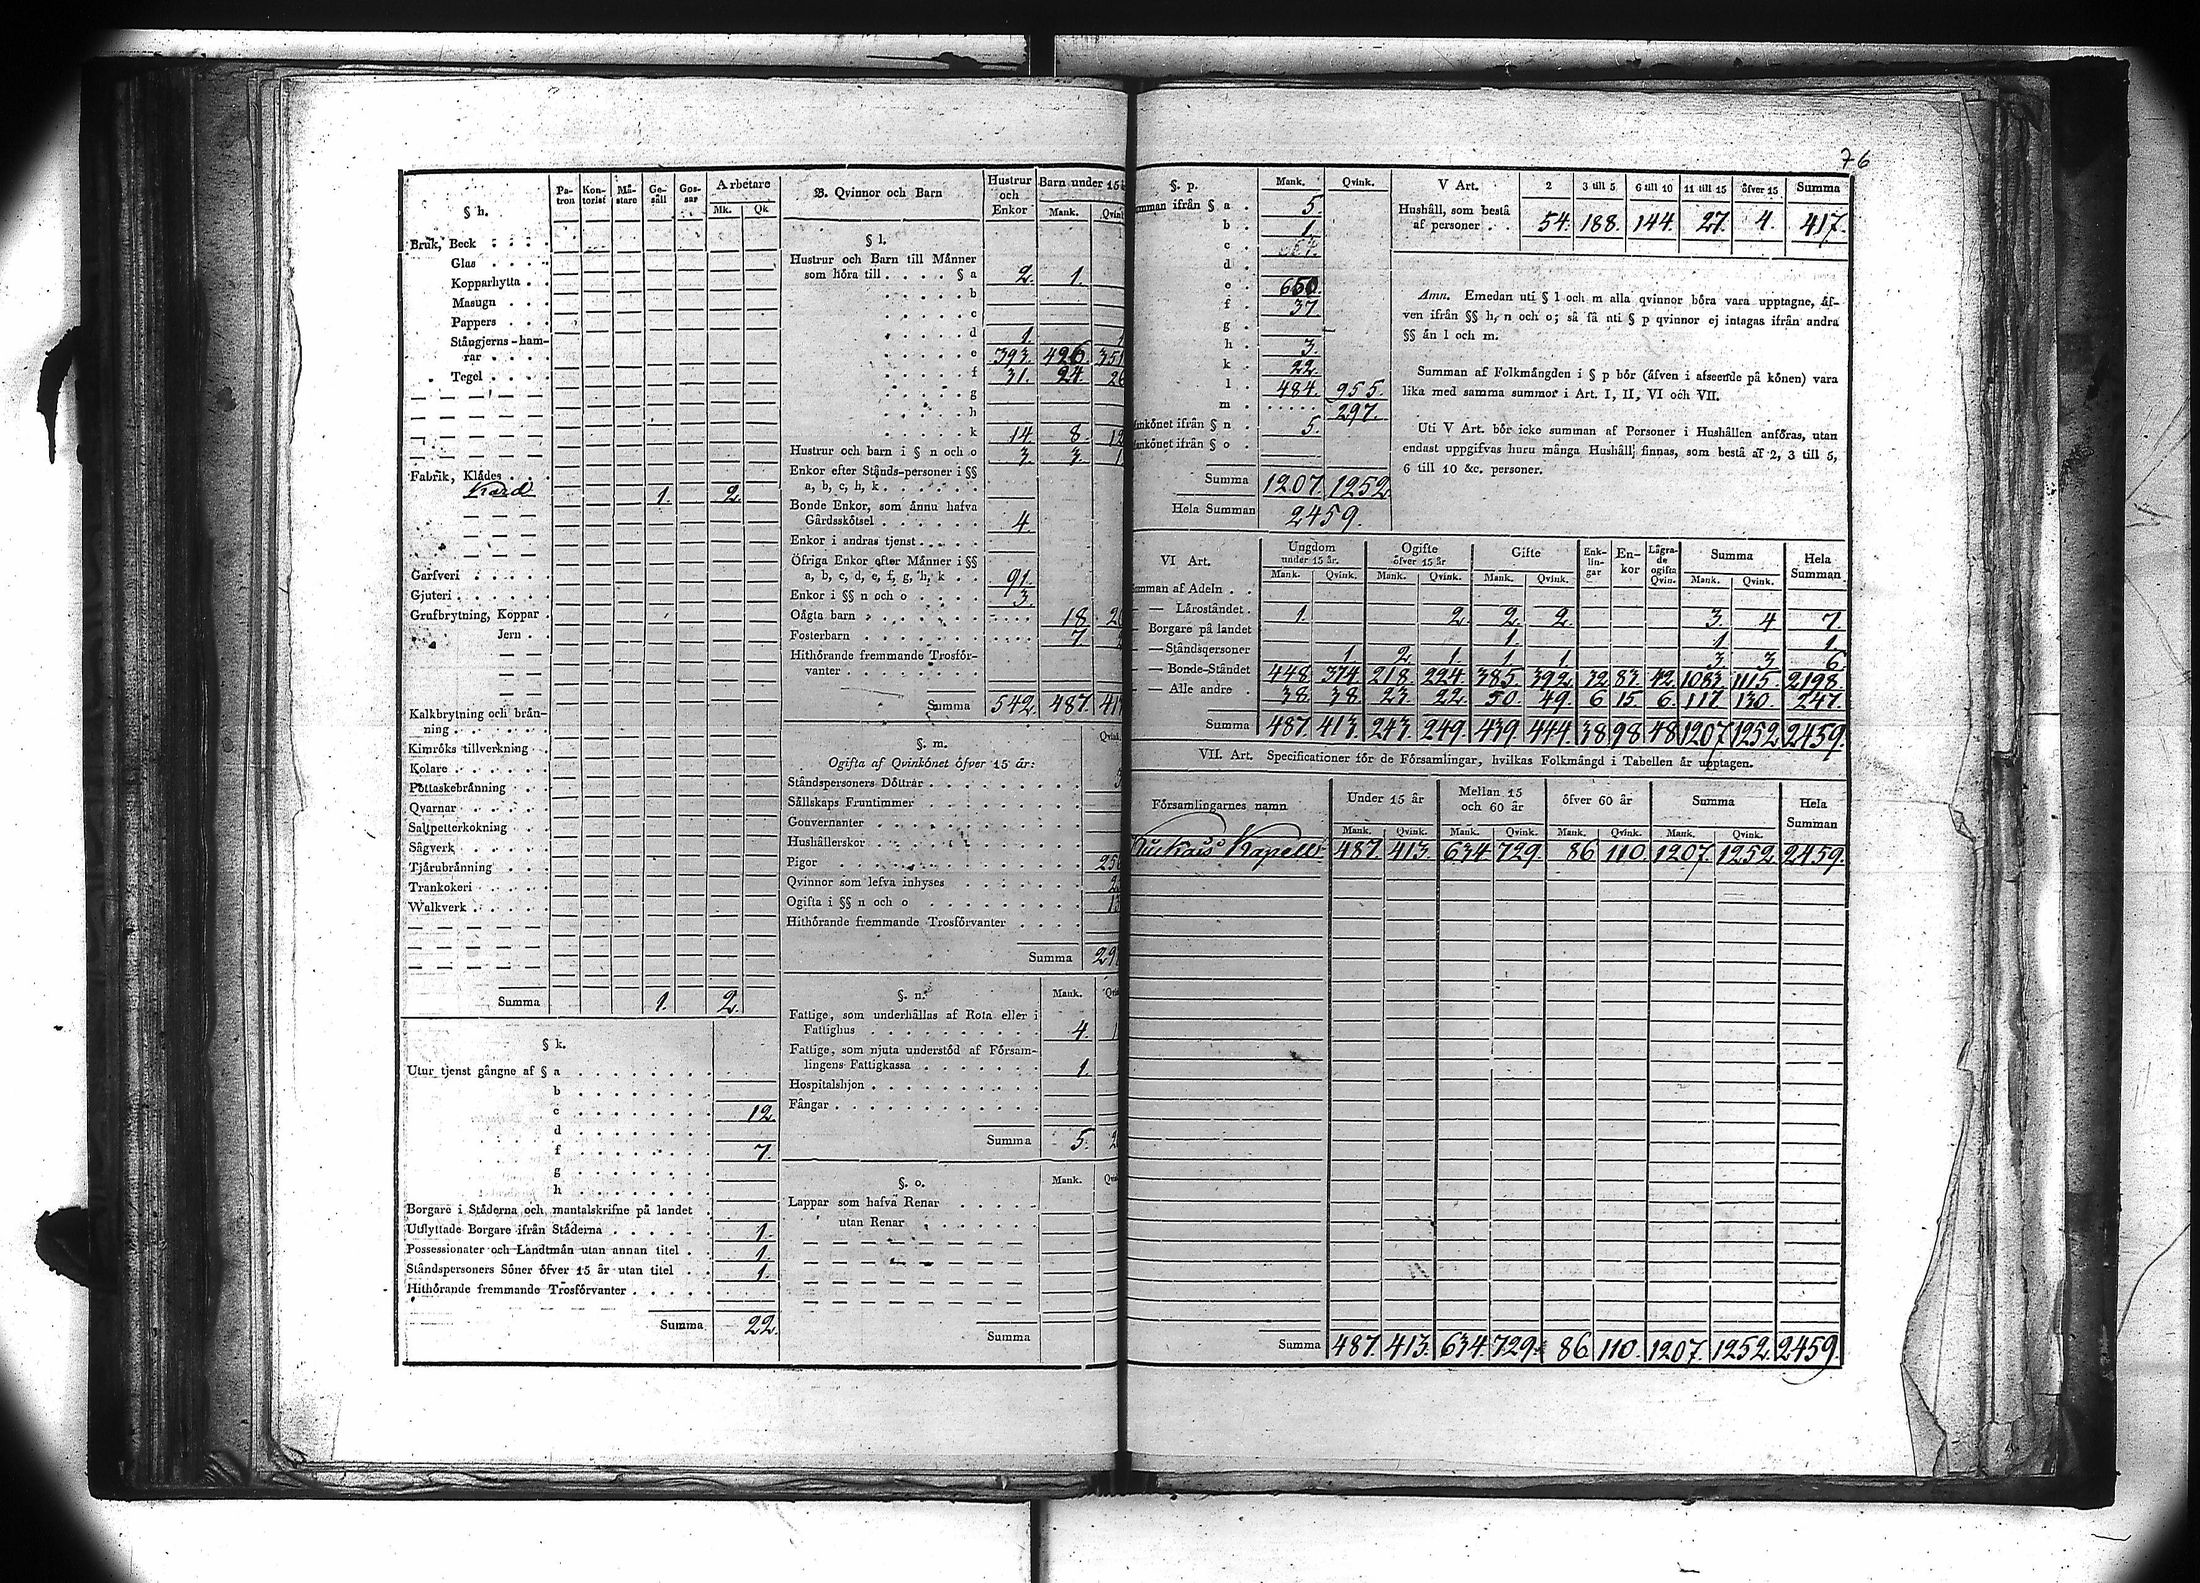 76
§ h.
Pa-tron Kon-torist Må-stare Ge-säll Gos-sar Arbetare
Mk. Qk.
Bruk, Beck
Glas
Kopparhytta
Masugn
Pappers
Stångjerns-ham-
rar
Tegel
Fabrik, Klädes
Kard 1. 2.
Garfveri
Gjuteri
Grufbrytning, Koppar
Jern
Kalkbrytning och brån-
ning
Kimróks tillverkning
Kolare
Pottaskebränning
Qvarnar
Saltpetterkokning
Sågverk
Tjårubränning
Trankokeri
Walkverk
Summa 1. 2.
§ k.
Utur tjenst gångne af § a
b
c 12.
d
f 7.
g
h
Borgare i Städerna och mantalskrifne på landet
Utflyttade Borgare ifrån Städerna 1.
Possessionater och Landtmån utan annan titel 1.
Ståndspersoners Söner öfver 15 år utan titel 1.
Hithörande fremmande Trosförvanter
Summa 22.
B. Qvinnor och Barn
Hustrur och Enkor Barn under 15
Mank.
§ l.
Hustrur och Barn till Männer
som höra till § a 2. 1.
b
c
d 1.
e 393. 426. 351
f 31. 24. 26
g
h
k 14. 8. 12
Hustrur och barn i § n och o 3. 3. 1
Enkor efter Stånds-personer i §§
a, b, c, h, k
Bonde Enkor, som ännu hafva
Gårdsskötsel 4.
Enkor i andras tjenst
Öfriga Enkor efter Männer i §§
a, b, c, d, e, f, g, h, k 91.
Enkor i §§ n och o 3.
Oägta barn 18
Fosterbarn 7.
Hithörande fremmande Trosför-
vanter
Summa 542. 487. 41
§. m.
Ogifta af Qvinkönet öfver 15 år:
Ståndspersoners Döttrar 3
Sällskaps Fruntimmer
Gouvernanter
Hushållerskor
Pigor 25
Qvinnor som lefva inhyses 2
Ogifta i §§ n och o 13
Hithörande fremmande Trosförvanter
Summa 29
§. n.
Mank.
Fattige, som underhållas af Rota eller i
Fattighus 4. 1
Fattige, som njuta understöd af Försam-
lingens Fattigkassa 1.
Hospitalshjon
Fångar
Summa 5. 2
§. o.
Mank.
Lappar som hafva Renar
utan Renar
Summa
§. p. Mank. Qvink.
mman ifrån § a 5.
b 1.
c
d
e 650.
f 37
g
h 3.
k 22.
l 484. 955.
m 297.
ankönet ifrån § n 5.
ankönet ifrån § o
Summa 1207. 1252.
Hela Summan 2459.
V Art. 2 3 till 5 6 till 10 11 till 15 öfver 15 Summa
Hushåll, som bestå
af personer 54. 188. 144. 27. 4. 417.
Anm. Emedan uti § l och m alla qvinnor böra vara upptagne, äf-
ven ifrån §§ h, n och o; så få uti § p qvinnor ej intagas ifrån andra
§§ än l och m.
Summan af Folkmängden i § p bör (äfven i afseende på könen) vara
lika med samma summor i Art. I, II, VI och VII.
Uti V Art. bör icke summan af Personer i Hushållen anföras, utan
endast uppgifvas huru många Hushåll finnas, som bestå af 2, 3 till 5,
6 till 10 &c. personer.
VI Art. Ungdom under 15 år. Ogifte öfver 15 år Gifte Enk-lin-gar En-kor Lägra-de ogifta Qvin. Summa Hela Summan
Mank. Qvink. Mank. Qvink. Mank. Qvink. Mank. Qvink.
mman af Adeln
— — Läroståndet 1. 2. 2. 2. 3. 4 7.
Borgare på landet 1. 1 1.
— Ståndspersoner 1 2. 1. 1. 1. 3. 3. 6.
— Bonde-Ståndet 448. 374. 218. 224. 385. 392. 32. 83. 42. 1083. 1115. 2198.
— — Alle andre 38. 38. 23. 22. 50. 49. 6 15. 6. 117. 130. 247.
Summa 487. 413. 243. 249. 439. 444. 38 98 48 1207 1252 2459.
VII. Art. Specificationer för de Församlingar, hvilkas Folkmängd i Tabellen är upptagen.
Församlingarnes namn Under 15 år Mellan 15 och 60 år öfver 60 år Summa Hela Summan
Mank. Qvink. Mank. Qvink. Mank. Qvink. Mank. Qvink.
Kapell 487. 413. 634. 729. 86 110. 1207. 1252. 2459.
Summa 487. 413. 634. 729. 86 110. 1207. 1252. 2459.